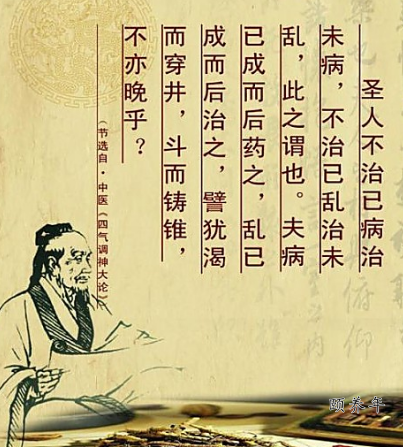 圣人不治已病治
未病，不治已乱治未
乱，此之谓也。夫病
已成而后药之，乱已
成而后治之，譬犹渴
而穿井，斗而铸锥，
不亦晚乎？
（节选自·中医《四气调神大论》）
颐养年